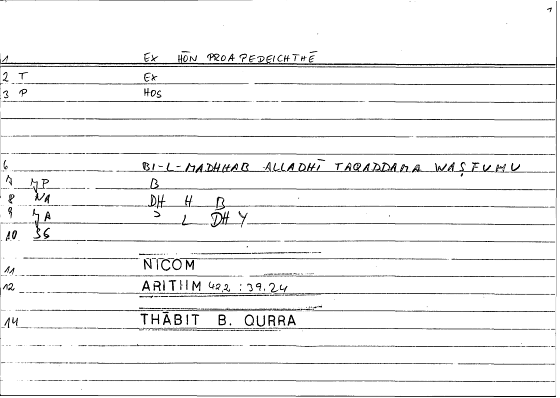 1
1 EX HŌN PROAPEDEICHTHĒ
2 T EX
3 P HOS
6 BI-L-MADHHAB ALLADHĪ TAQADDAMA WAṢFUHU
7 MP B
8 NA DH H B
9 MA L DH Y
10 SG
11 NICOM
12 ARITIIM 42,2 : 39.24
14 THĀBIT B. QURRA